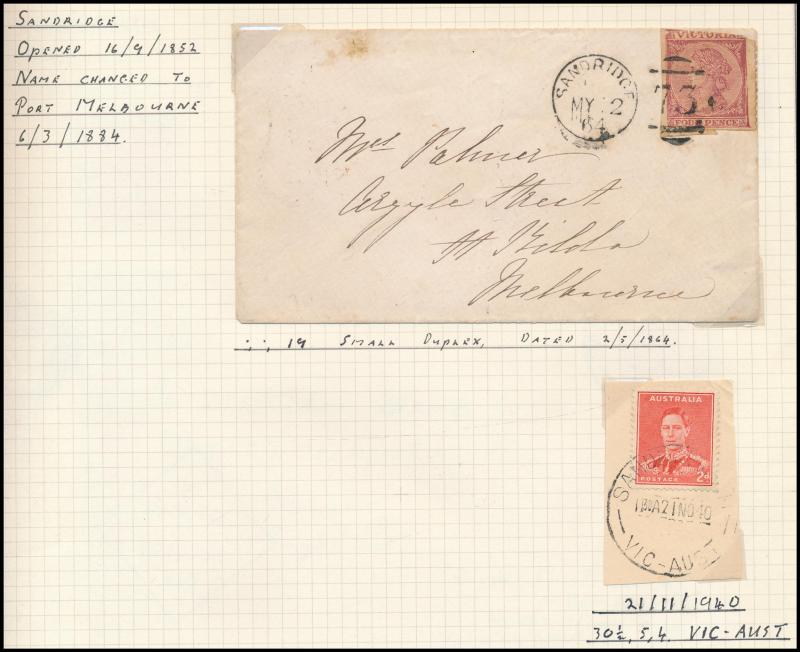 SANDRIDGE
OPENED 16/9/1852
NAME CHANGED TO
PORT MELBOURNE
6/3/1884.
SANDRIDGE
MY 2
64
VICTORIA
73
FOUR PENCE
Mrs Palmer
Argyle Street
St Kilda
Melbourne
19 SMALL DUPLEX, DATED 2/5/1864.
AUSTRALIA
2d
POSTAGE
A21NO40
VIC-AUST
21/11/1940
30½, 5, 4. VIC-AUST